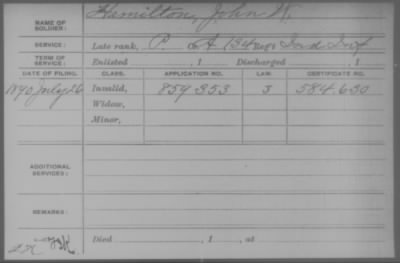 NAME OF SOLDIER: Hamilton, John W.
SERVICE: Late rank, P. Co A 134 Reg't Ind Inf
TERM OF SERVICE: Enlisted , 1 Discharged , 1
DATE OF FILING. CLASS. APPLICATION NO. LAW. CERTIFICATE NO.
1890 July 26 Invalid, 859 353 J 584 630
Widow,
Minor,
ADDITIONAL SERVICES:
REMARKS:
Died , 1 , at